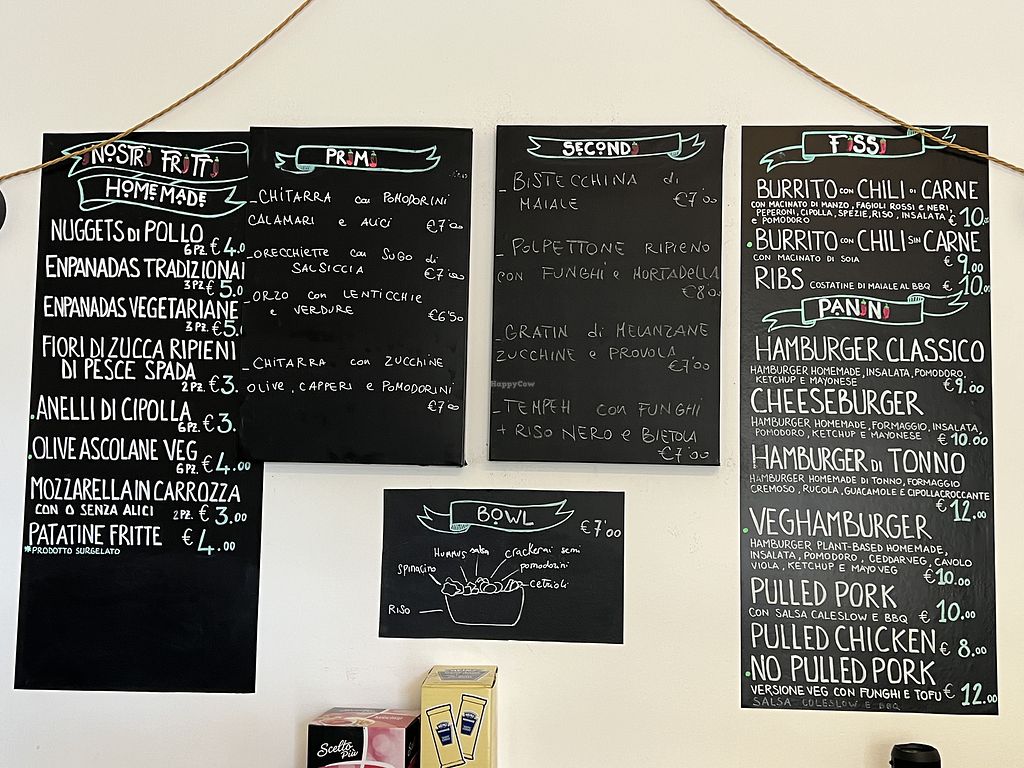 I NOSTRI FRITTI
HOMEMADE
NUGGETS di POLLO
6 PZ. € 4.0
EMPANADAS TRADIZIONAI
3 PZ. € 5.0
EMPANADAS VEGETARIANE
3 PZ. € 5.
FIORI DI ZUCCA RIPIENI
DI PESCE SPADA
2 PZ. € 3.
ANELLI DI CIPOLLA
6 PZ. € 3.
OLIVE ASCOLANE VEG
6 PZ. € 4.00
MOZZARELLA IN CARROZZA
CON O SENZA ALICI 2 PZ. € 3.00
PATATINE FRITTE € 4.00
*PRODOTTO SURGELATO
PRIMI
- CHITARRA con POMODORINI
CALAMARI e ALICI €7'00
- ORECCHIETTE con SUGO di
SALSICCIA €7'00
- ORZO con LENTICCHIE
e VERDURE €6'50
- CHITARRA con ZUCCHINE
OLIVE, CAPPERI e POMODORINI
€7'00
SECONDI
- BISTECCHINA di
MAIALE €7'00
- POLPETTONE RIPIENO
con FUNGHI e MORTADELLA
€8'0
- GRATIN di MELANZANE
ZUCCHINE e PROVOLA
€7'00
- TEMPEH con FUNGHI
+ RISO NERO e BIETOLA
€7'00
HappyCow
BOWL €7'00
HUMMUS salsa crackerni semi
SPINACINO pomodorini
cetrioli
RISO
FISSI
BURRITO con CHILI di CARNE
CON MACINATO DI MANZO, FAGIOLI ROSSI e NERI,
PEPERONI, CIPOLLA, SPEZIE, RISO, INSALATA
e POMODORO € 10.
BURRITO con CHILI sin CARNE
CON MACINATO DI SOIA € 9.00
RIBS COSTATINE DI MAIALE AL BBQ € 10.00
PANINI
HAMBURGER CLASSICO
HAMBURGER HOMEMADE, INSALATA, POMODORO,
KETCHUP E MAYONESE € 9.00
CHEESEBURGER
HAMBURGER HOMEMADE, FORMAGGIO, INSALATA,
POMODORO, KETCHUP e MAYONESE € 10.00
HAMBURGER di TONNO
HAMBURGER HOMEMADE DI TONNO, FORMAGGIO
CREMOSO, RUCOLA, GUACAMOLE E CIPOLLA CROCCANTE
€ 12.00
VEGHAMBURGER
HAMBURGER PLANT-BASED HOMEMADE,
INSALATA, POMODORO, CEDDARVEG, CAVOLO
VIOLA, KETCHUP E MAYO VEG
€ 10.00
PULLED PORK
CON SALSA CALESLOW E BBQ € 10.00
PULLED CHICKEN € 8.00
NO PULLED PORK
VERSIONE VEG CON FUNGHI E TOFU € 12.00
SALSA COLESLOW E BBQ
Scelto
Più
HEINZ